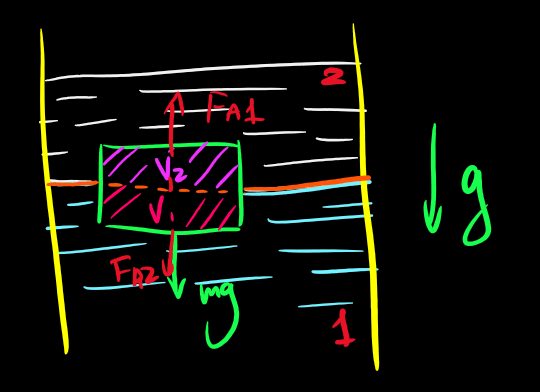 2
F_A1
V_2
V
g
F_A2
mg
1